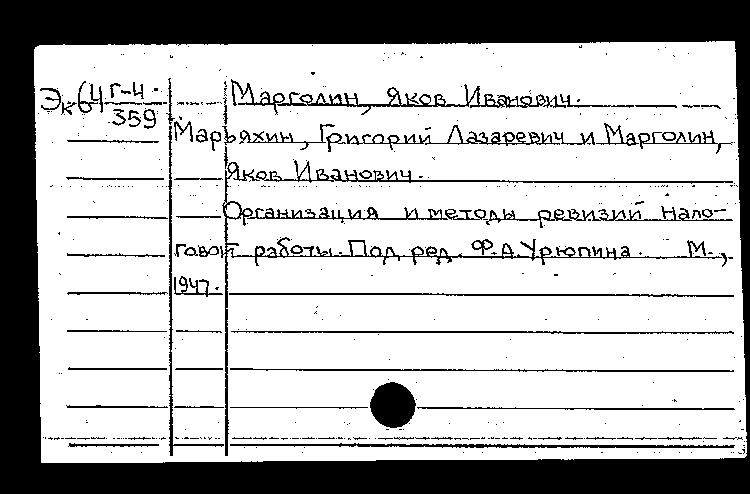 Эк64 Г-4.
359
Марголин, Яков Иванович.
Марьяхин, Григорий Лазаревич и Марголин,
Яков Иванович.
Организация и методы ревизий нало-
говой работы. Под ред. Ф.А.Урюпина. М.,
1947.